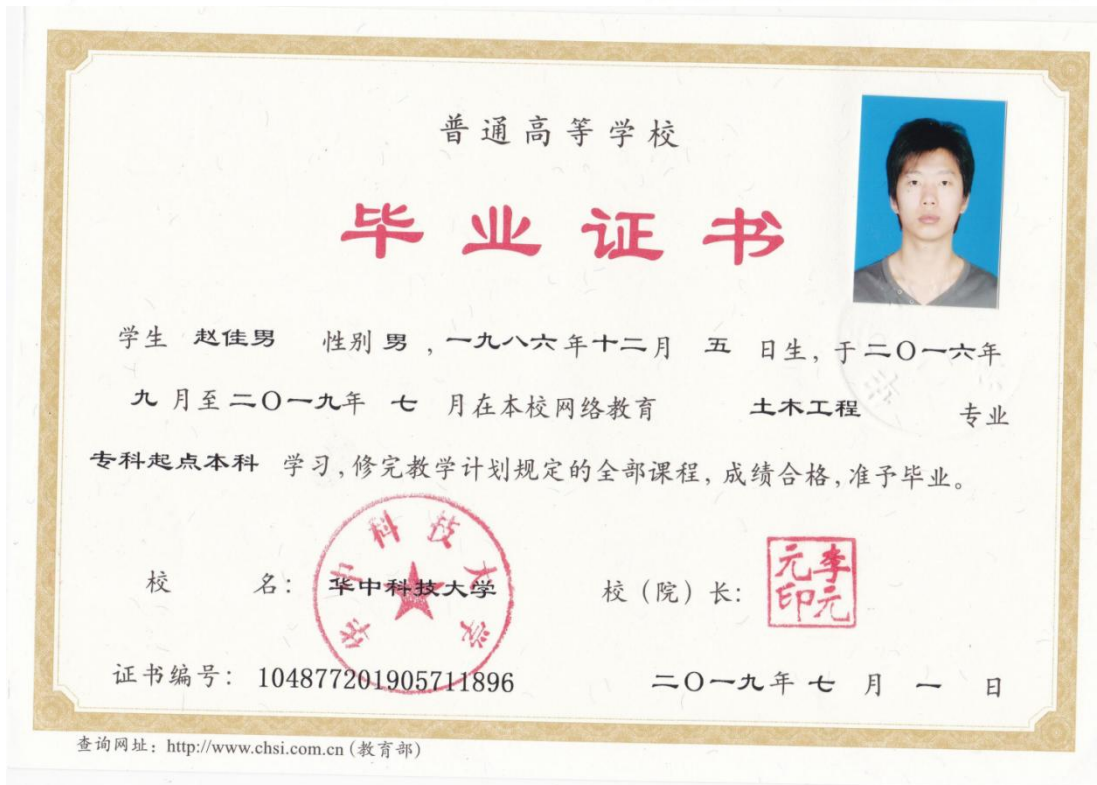 普通高等学校
毕业证书
学生 赵佳男 性别 男 ，一九八六年十二月 五 日生，于二〇一六年
九 月至二〇一九年 七 月在本校网络教育 土木工程 专业
专科起点本科 学习，修完教学计划规定的全部课程，成绩合格，准予毕业。
华中科技大学
校 名： 华中科技大学 校（院）长： 李元元印
证书编号： 104877201905711896 二〇一九年 七 月 一 日
查询网址：http://www.chsi.com.cn (教育部)